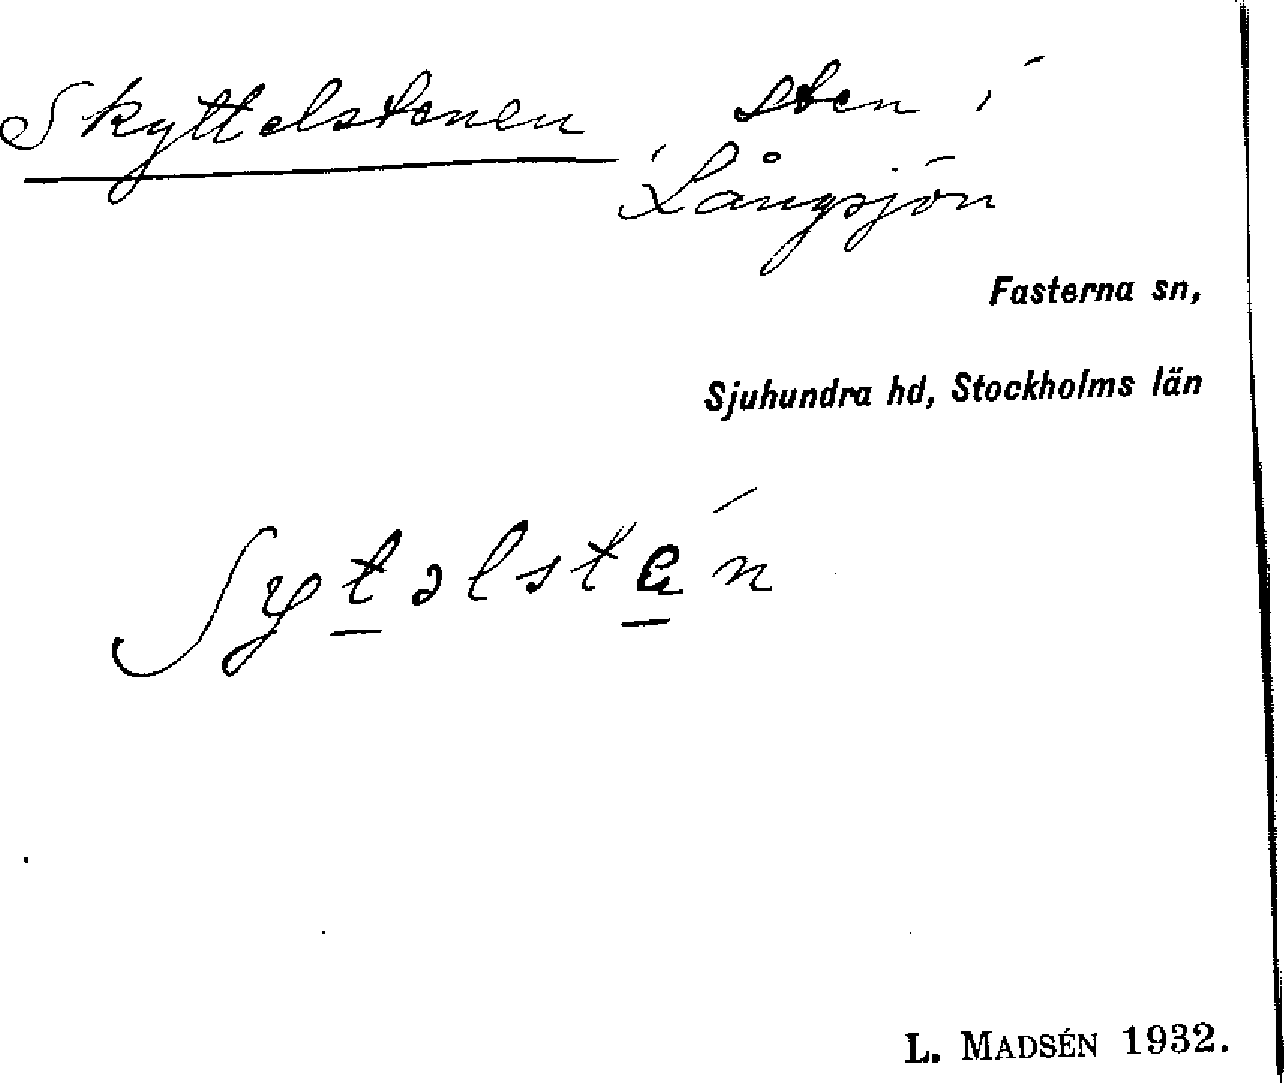 Skyttelstenen sten i
Långsjön
Fasterna sn,
Sjuhundra hd, Stockholms län
ʃytəlstén
L. MADSÉN 1932.